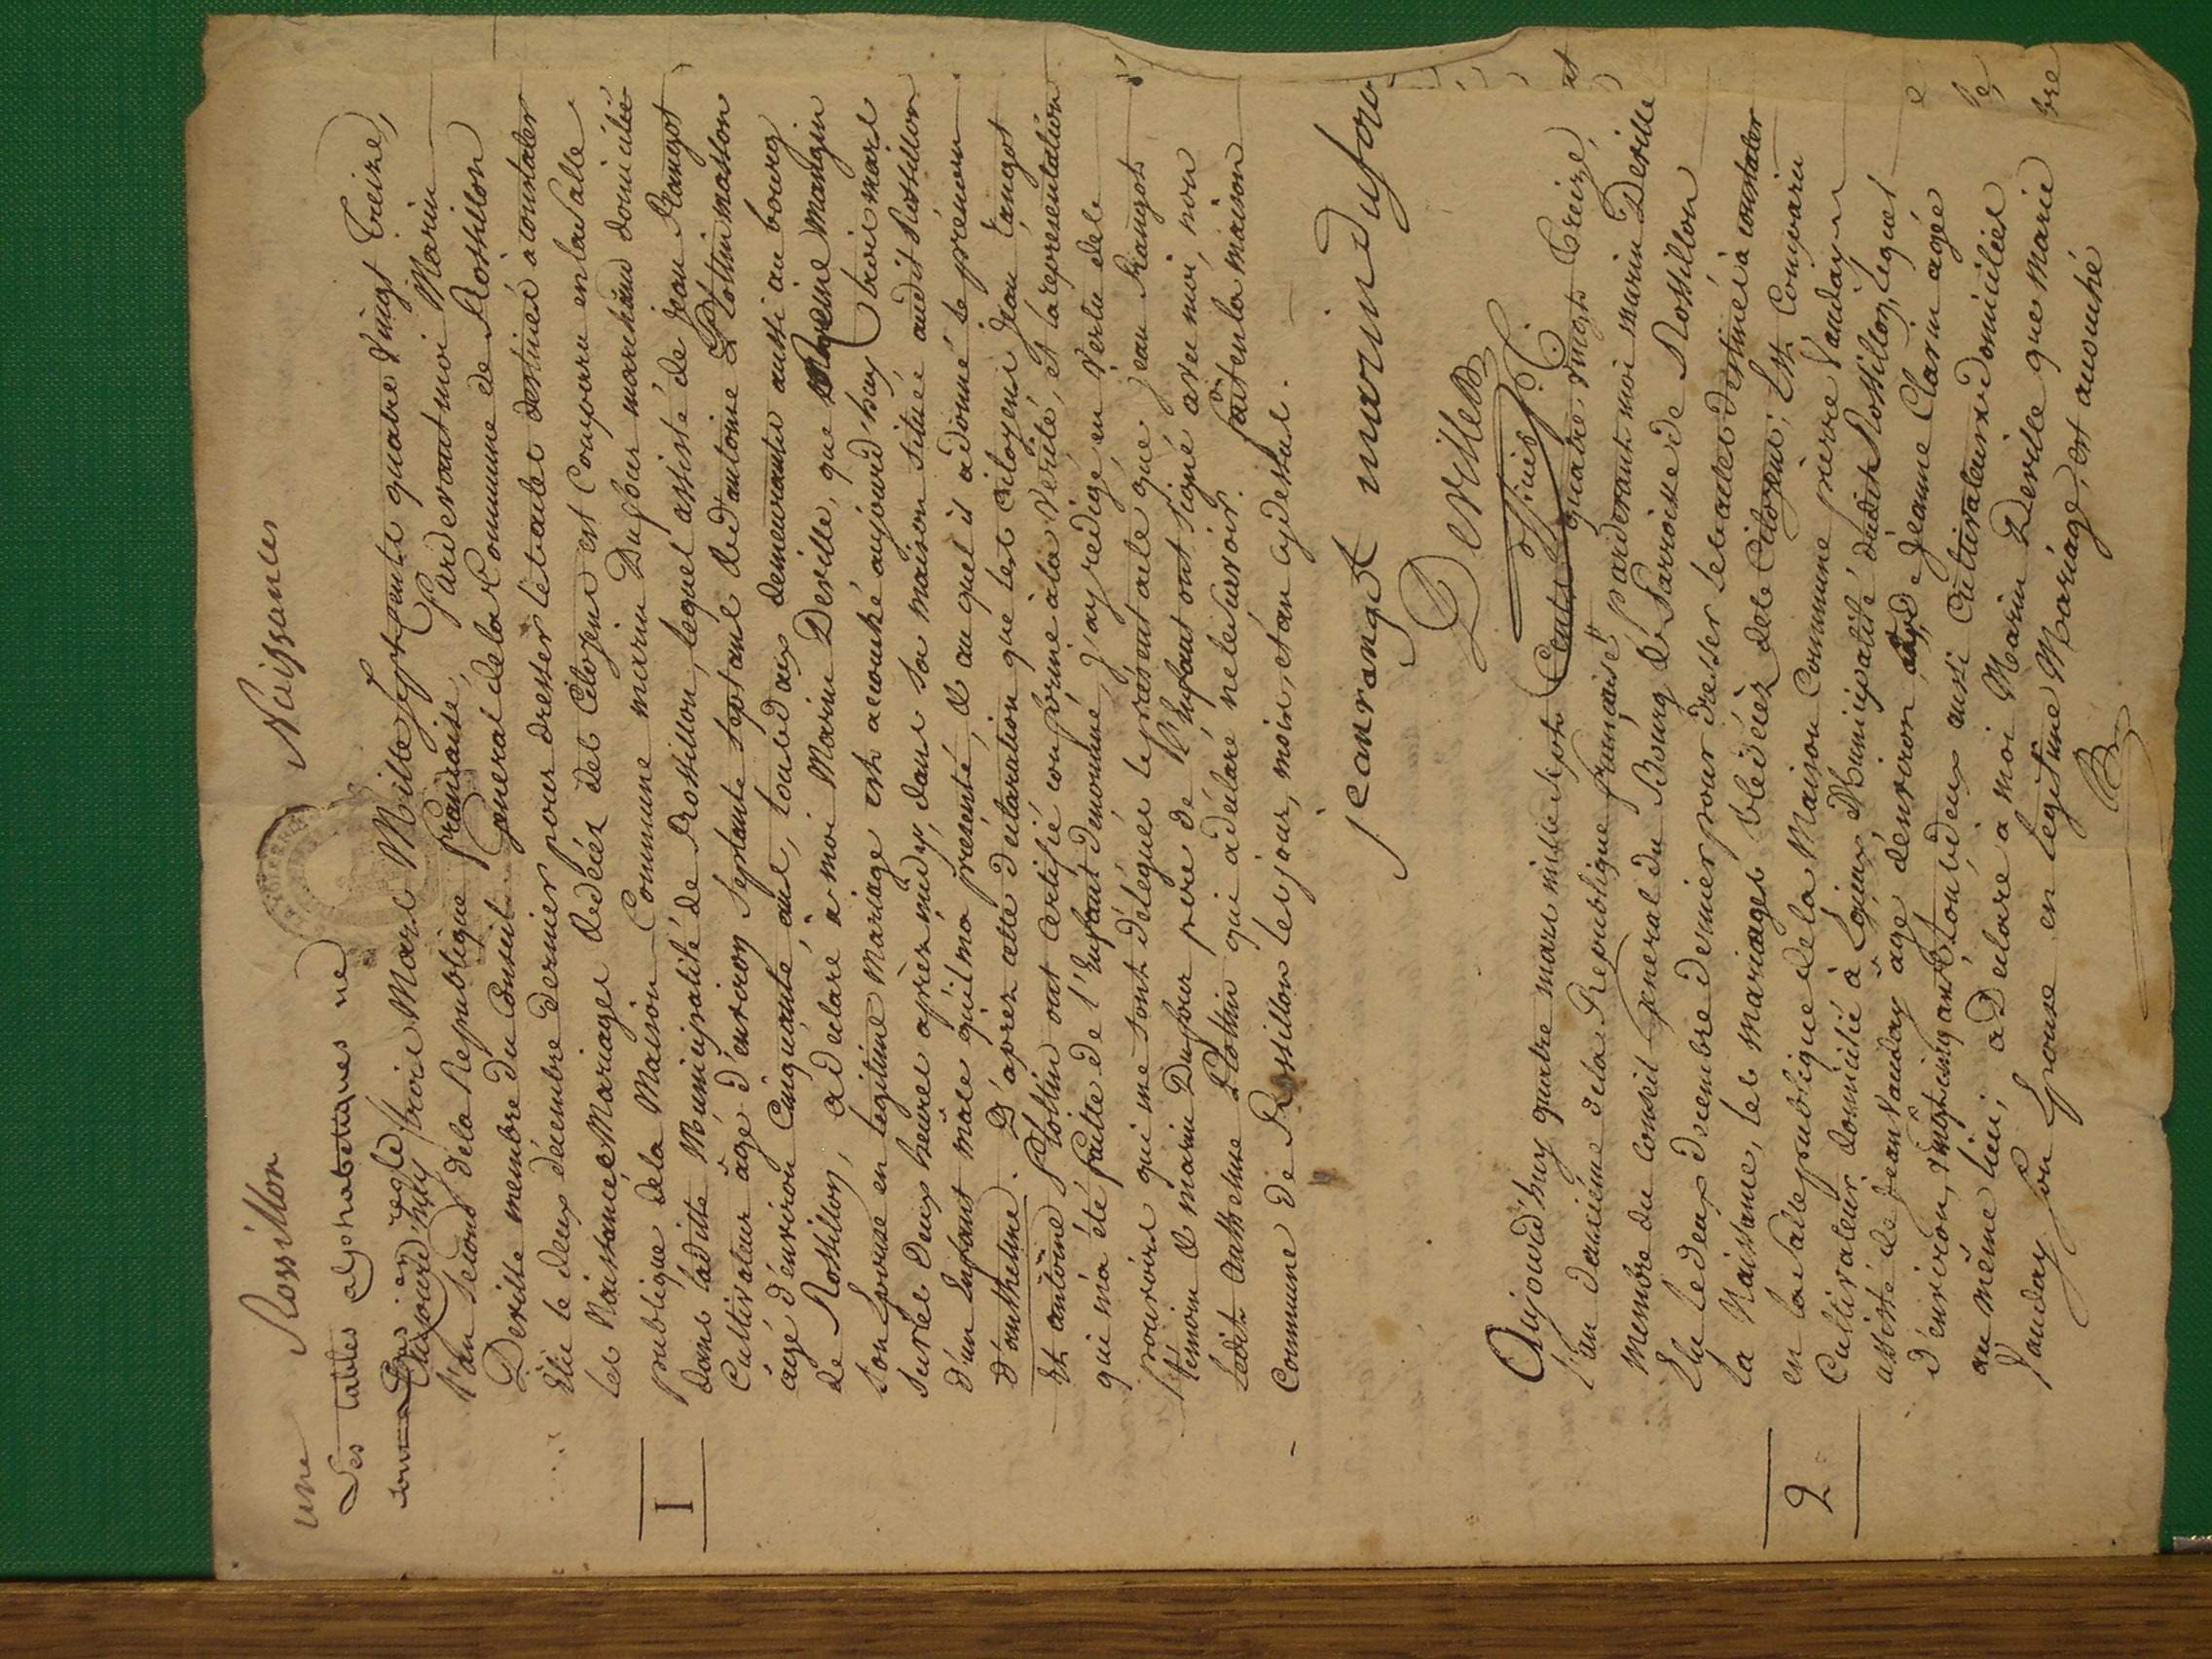 une Rossillon Naissances
Les tables alphabetiques ne
sont pas en regle
Aujourd'huy trois Mars Mille sept cents quatre vingt treize,
l'an second dela Republique française, Pardevant moi Marin
Deville membre du Conseil general dela Commune de Rossillon
élu le deux décembre dernier pour dresser les actes destinés a constater
les Naissances Mariages & décés des Citoyens est Comparu en la Salle
publique dela Maison Commune marin Dufour marchand domicilié
dans laditte Municipalité de Rossillon, lequel assisté de Jean Rangot
Cultivateur âgé d'environ septante sept ans & d'antoine Plottin masson
âgé d'environ Cinquante ans, tous deux demeurants aussi au bourg
de Rossillon, a declaré à moi Marin Deville, que Reine mangin
son Epouse en legitime Mariage est accouchée aujourd'huy trois mars
sur les Deux heures après midy, dans sa maison située audit Rossillon
d'un Enfant mâle qu'il m'a présenté, & au quel il a donné le prénom
d'anthelme. D'après cette déclaration que les citoyens Jean Rangot
et antoine Plottin ont certifié conforme à la verité, et la representation
qui m'a été faitte de l'Enfant denommé, j'ay redigé en vertu des
pouvoirs qui me sont délégués le présent acte que Jean Rangot
témoin & marin Dufour pere de l'Enfant ont signé avec moi, non
ledit Plottin qui a déclaré ne le savoir. fait en la maison
Commune de Rossillon les jour, mois, et an cydessus.
jean rangot marin Dufour
Deville
officier
Aujourd'huy quatre mars mille sept Cents quatre vingt treize,
l'an deuxième dela Republique française pardevant moi marin Deville
membre du Conseil general du Bourg & Parroisse de Rossillon
Elu le deux decembre dernier pour dresser les actes destinés à constater
la Naissance, les mariages & les décés des Citoyens; Est Comparu
en la Salle publique dela Maison Commune pierre Vauday
Cultivateur domicilié à Municipalité dudit Rossillon, lequel
assisté de Jean Vauday age d'environ & de jeanne Clarin agée
d'environ vingt cinq ans tous deux aussi Cultivateurs domiciliés
au même lieu, a Declaré a moi Marin Deville que marie
Vauday son Epouse en legitime Mariage, est accouché
1
2